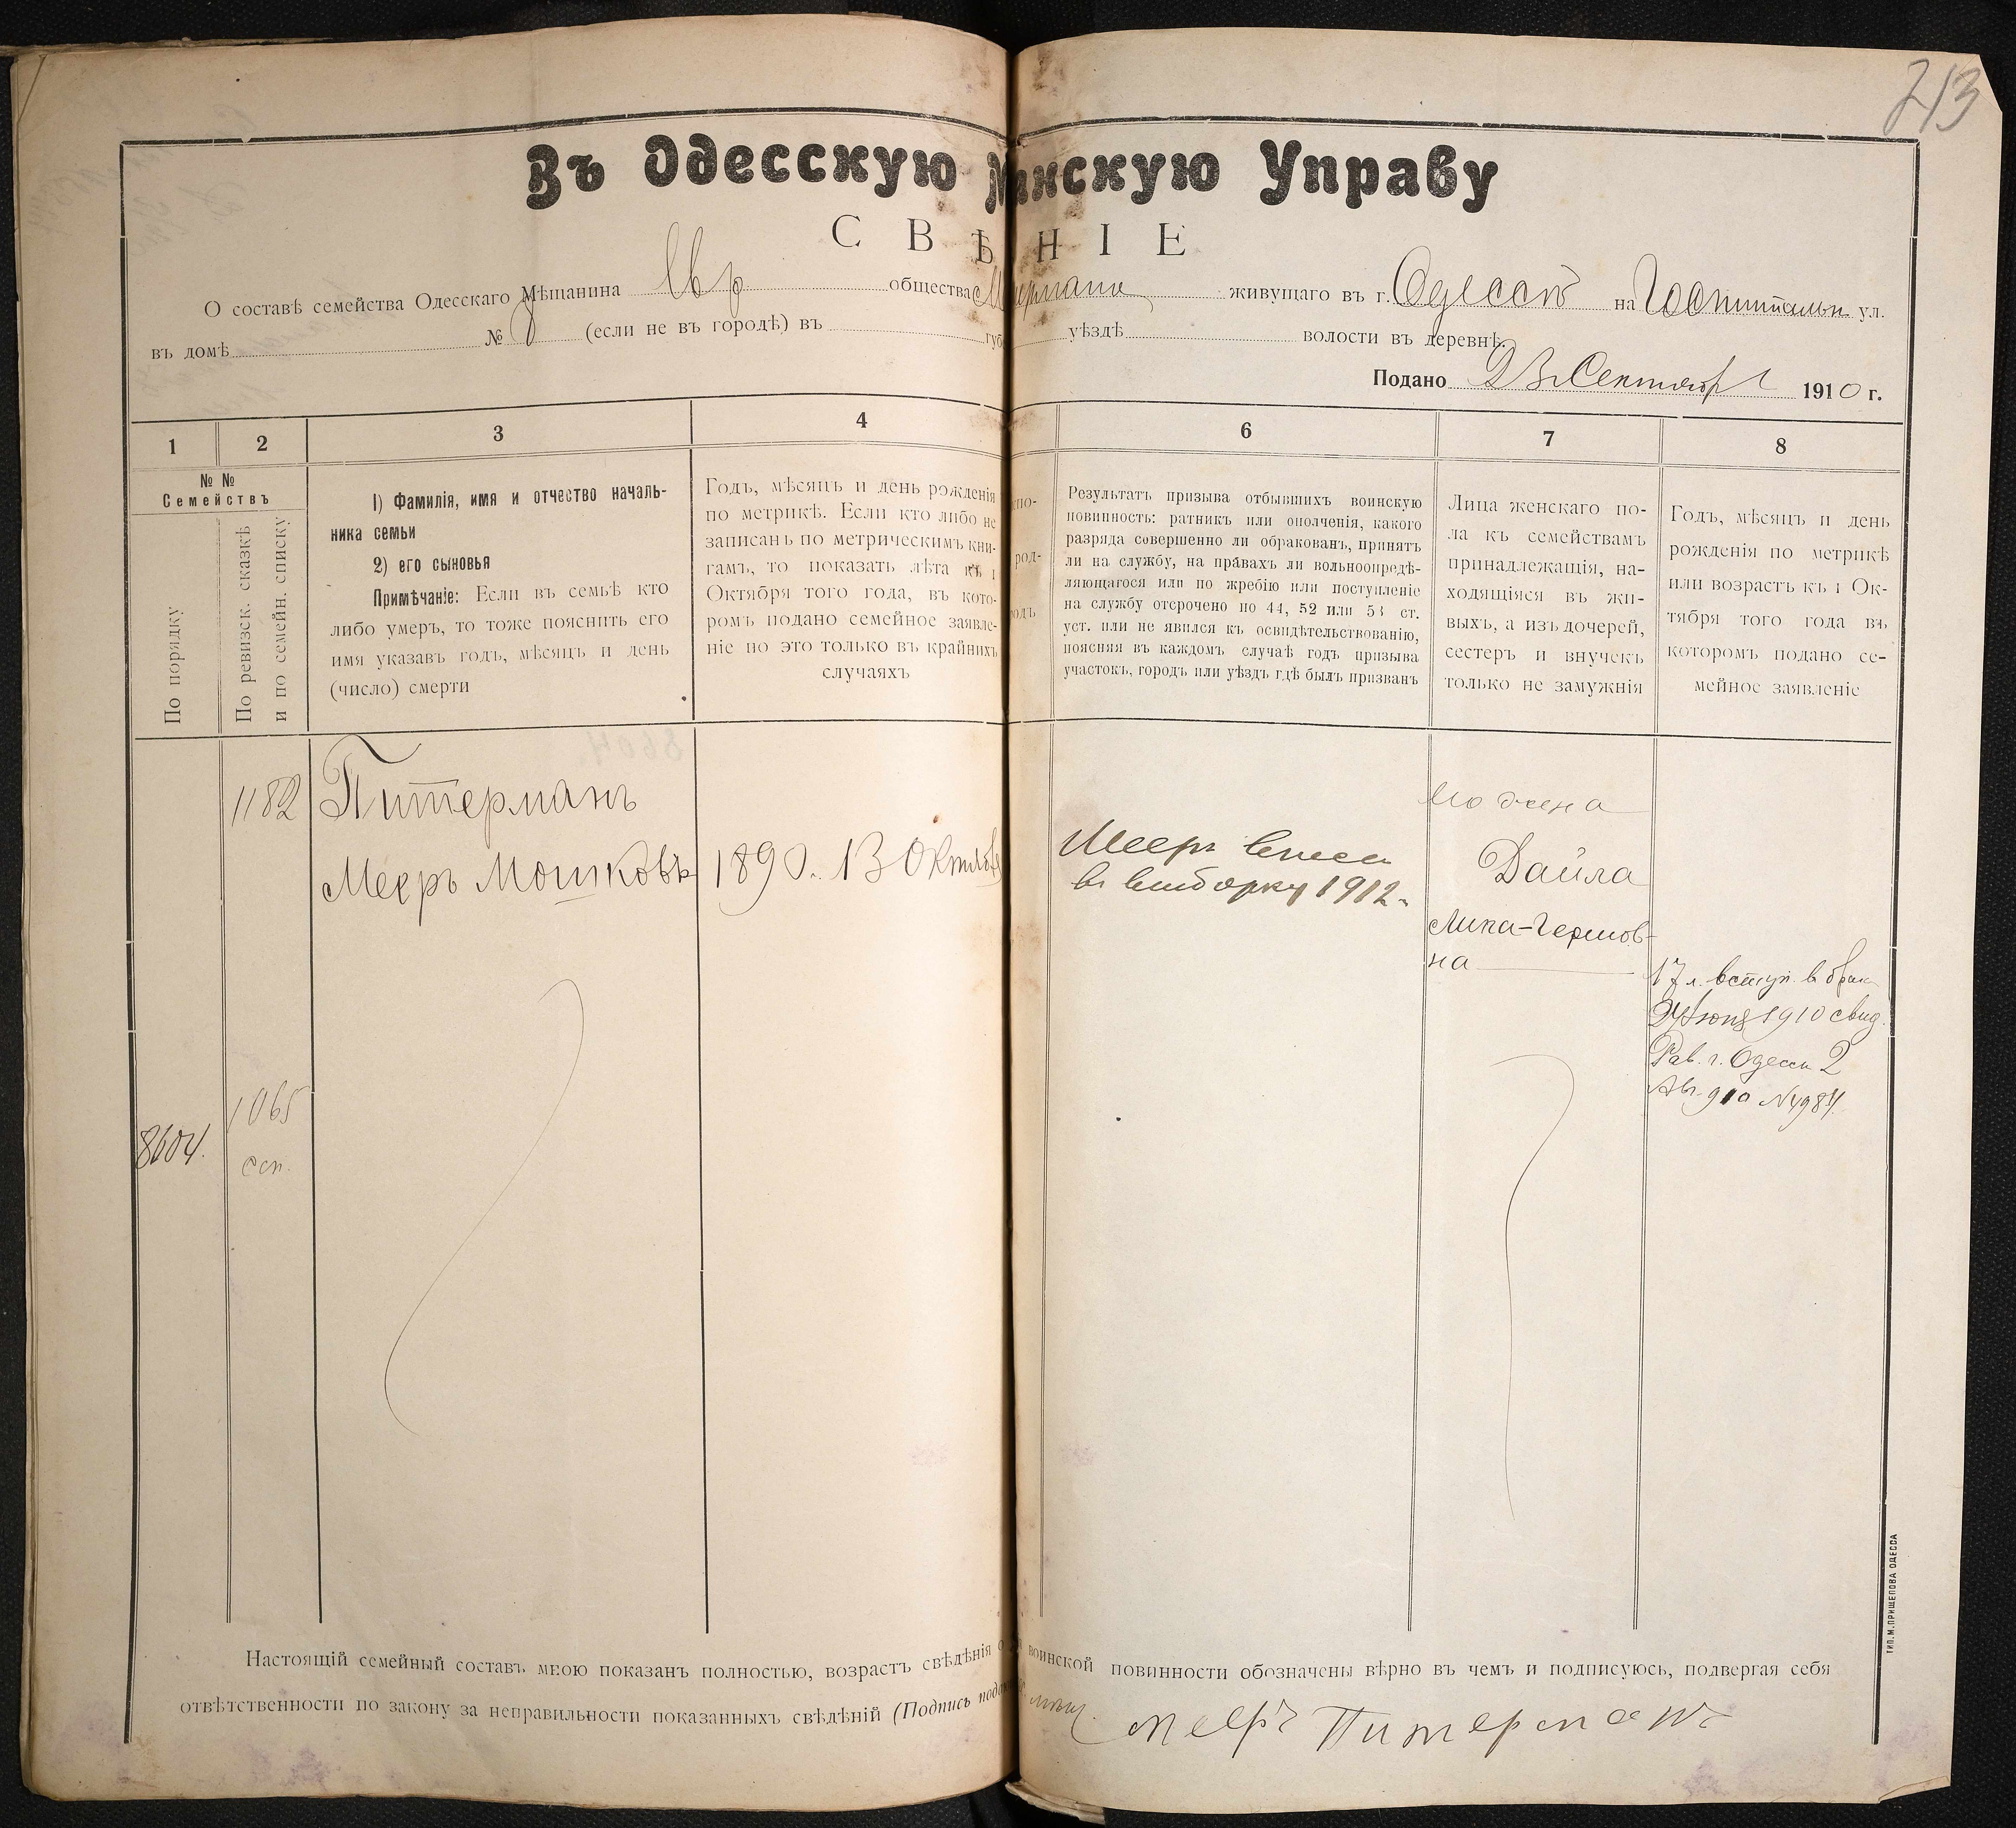 213
Въ Одесскую М нскую Управу
СВѢ НІЕ
О составѣ семейства Одесскаго Мѣщанина Евр общества живущаго въ г. Одессѣ на Госпитальн ул.
въ домѣ № 8 (если не въ городѣ) въ губ уѣздѣ волости въ деревнѣ
Подано 23 Сентября 1910 г.
1 2 3 4 6 7 8
№ №
Семействъ
По порядку
По ревизск. сказкѣ
и по семейн. списку
1) Фамилія, имя и отчество началь-
ника семьи
2) его сыновья
Примѣчаніе: Если въ семьѣ кто
либо умеръ, то тоже пояснить его
имя указавъ годъ, мѣсяцъ и день
(число) смерти
Годъ, мѣсяцъ и день рожденія
по метрикѣ. Если кто либо не
записанъ по метрическимъ кни-
гамъ, то показать лѣта къ 1
Октября того года, въ кото-
ромъ подано семейное заявле-
ніе но это только въ крайнихъ
случаяхъ
Результатъ призыва отбывшихъ воинскую
повинность: ратникъ или ополченія, какого
разряда совершенно ли обракованъ, принятъ
ли на службу, на правахъ ли вольноопредѣ-
ляющагося или по жребію или поступленіе
на службу отсрочено по 44, 52 или 53 ст.
уст. или не явился къ освидѣтельствованію,
поясняя въ каждомъ случаѣ годъ призыва
участокъ, городъ или уѣздъ гдѣ былъ призванъ
Лица женскаго по-
ла къ семействамъ
принадлежащія, на-
ходящіяся въ жи-
выхъ, а изъ дочерей,
сестеръ и внучекъ
только не замужнія
Годъ, мѣсяцъ и день
рожденія по метрикѣ
или возрастъ къ 1 Ок-
тября того года въ
которомъ подано се-
мейное заявленіе
1182
Питерманъ
Мееръ Мошковъ
1890. 13 Октября
Мееръ внесен
въ выборку 1912
его жена
Дайла
Лика-Гершов-
на
17 л. вступ. в брак
24 Іюня 1910 свид.
Рав. г. Одессы 2
Авг. 910 №4984.
1065
ссп.
8604.
Настоящій семейный составъ мною показанъ полностью, возрастъ свѣдѣнія о воинской повинности обозначены вѣрно въ чемъ и подписуюсь, подвергая себя
отвѣтственности по закону за неправильности показанныхъ свѣдѣній (Подпись
Мееръ Питерманъ
ТИП. М. ПРИЩЕПОВА ОДЕССА